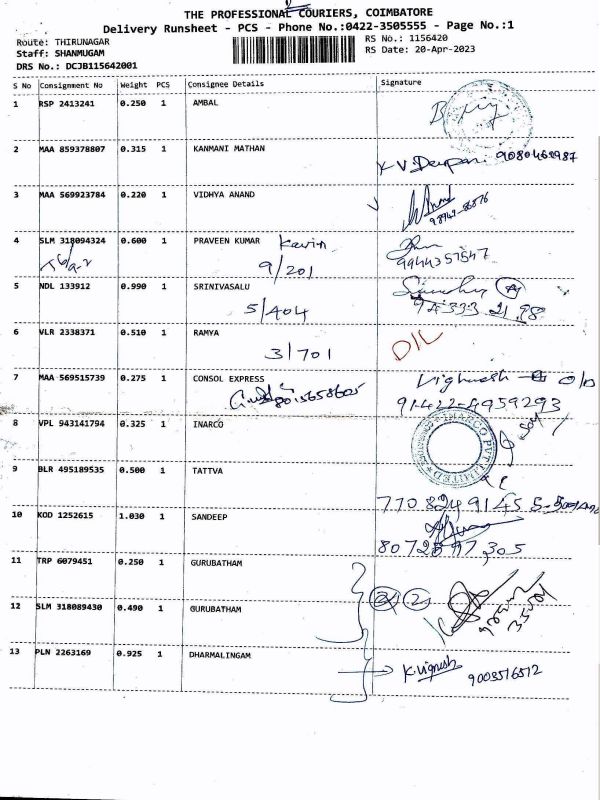 THE PROFESSIONAL COURIERS, COIMBATORE
Delivery Runsheet - PCS - Phone No.:0422-3505555 - Page No.:1
Route: THIRUNAGAR
RS No.: 1156420
Staff: SHANMUGAM
RS Date: 20-Apr-2023
DRS No.: DCJB115642001
S No Consignment No Weight PCS Consignee Details Signature
1 RSP 2413241 0.250 1 AMBAL
2 MAA 859378807 0.315 1 KANMANI MATHAN
3 MAA 569923784 0.220 1 VIDHYA ANAND
4 SLM 318094324 0.600 1 PRAVEEN KUMAR Kavin
9/201
9944357547
5 NDL 133912 0.990 1 SRINIVASALU
5/404
6 VLR 2338371 0.510 1 RAMYA
3/701
D/L
7 MAA 569515739 0.275 1 CONSOL EXPRESS Vighnesh
8015658605
91422-4959293
8 VPL 943141794 0.325 1 INARCO
INARCO PVT LIMITED
9 BLR 495189535 0.500 1 TATTVA
10 KOD 1252615 1.030 1 SANDEEP
11 TRP 6079451 0.250 1 GURUBATHAM
2
12 SLM 318089430 0.490 1 GURUBATHAM
13 PLN 2263169 0.925 1 DHARMALINGAM
K.Vignesh 9003516512